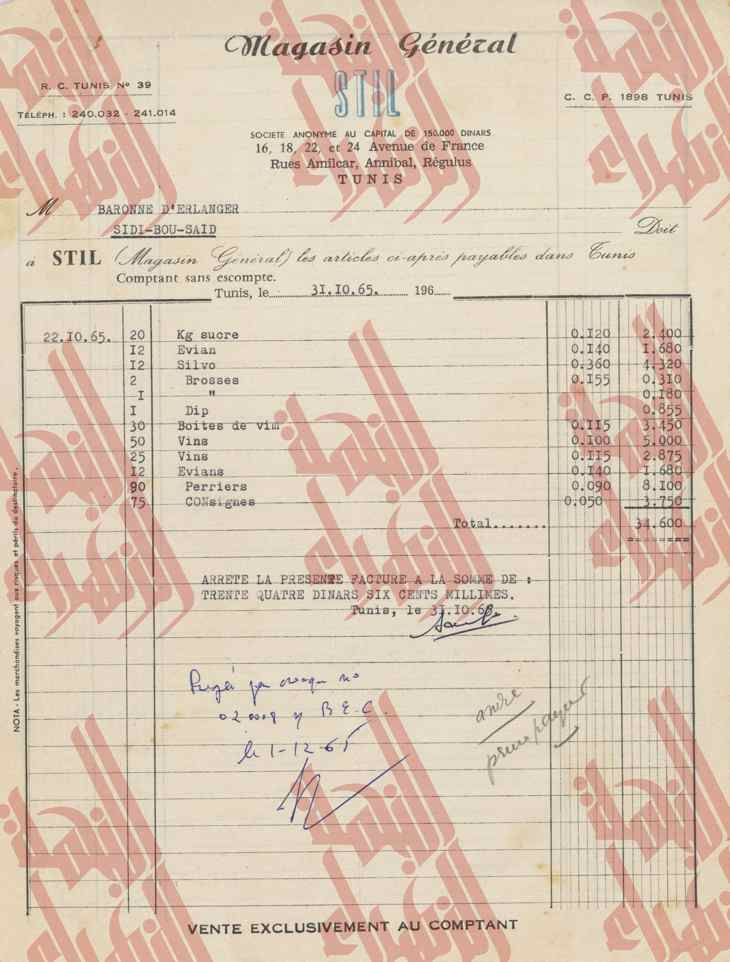 Magasin Général
R. C. TUNIS Nº 39
STIL
C. C. P. 1898 TUNIS
TÉLÉPH. : 240.032 - 241.014
SOCIETE ANONYME AU CAPITAL DE 150.000 DINARS
16, 18, 22, et 24 Avenue de France
Rues Amilcar, Annibal, Régulus
TUNIS
M BARONNE D'ERLANGER
SIDI-BOU-SAID Doit
a STIL (Magasin Général) les articles ci-après payables dans Tunis
Comptant sans escompte.
Tunis, le 31.10.65. 196
22.10.65. 20 Kg sucre 0.120 2.400
I2 Evian 0.140 I.680
I2 Silvo 0.360 4.320
2 Brosses 0.155 0.310
I " 0.180
I Dip 0.855
30 Boites de vim 0.115 3.450
50 Vins 0.100 5.000
25 Vins 0.115 2.875
I2 Evians 0.140 I.680
90 Perriers 0.090 8.100
75 CONsignes 0.050 3.750
Total....... 34.600
ARRETE LA PRESENTE FACTURE A LA SOMME DE :
TRENTE QUATRE DINARS SIX CENTS MILLIMES.
Tunis, le 31.10.65.
le 1-12-65
NOTA - Les marchandises voyagent aux risques et périls du destinataire.
VENTE EXCLUSIVEMENT AU COMPTANT
النجمة الزهراء